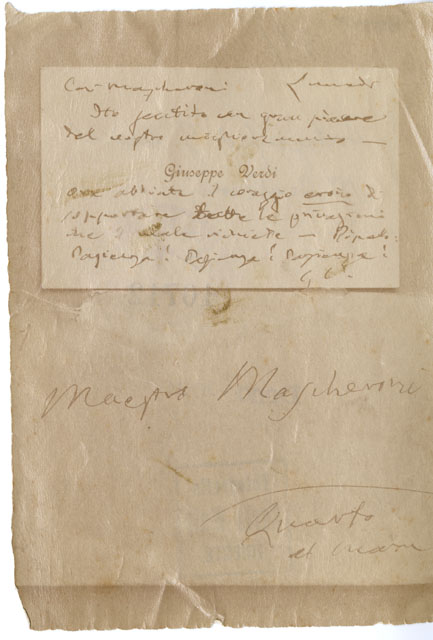 Car Mascheroni Lunedì
Ho sentito con gran piacere
del vostro miglioramento —
Giuseppe Verdi
ora abbiate il coraggio eroico di
sopportare tutte le privazioni
che
Pazienza! Pazienza! Pazienza!
G. V.
Maestro Mascheroni
Quarto
al mare